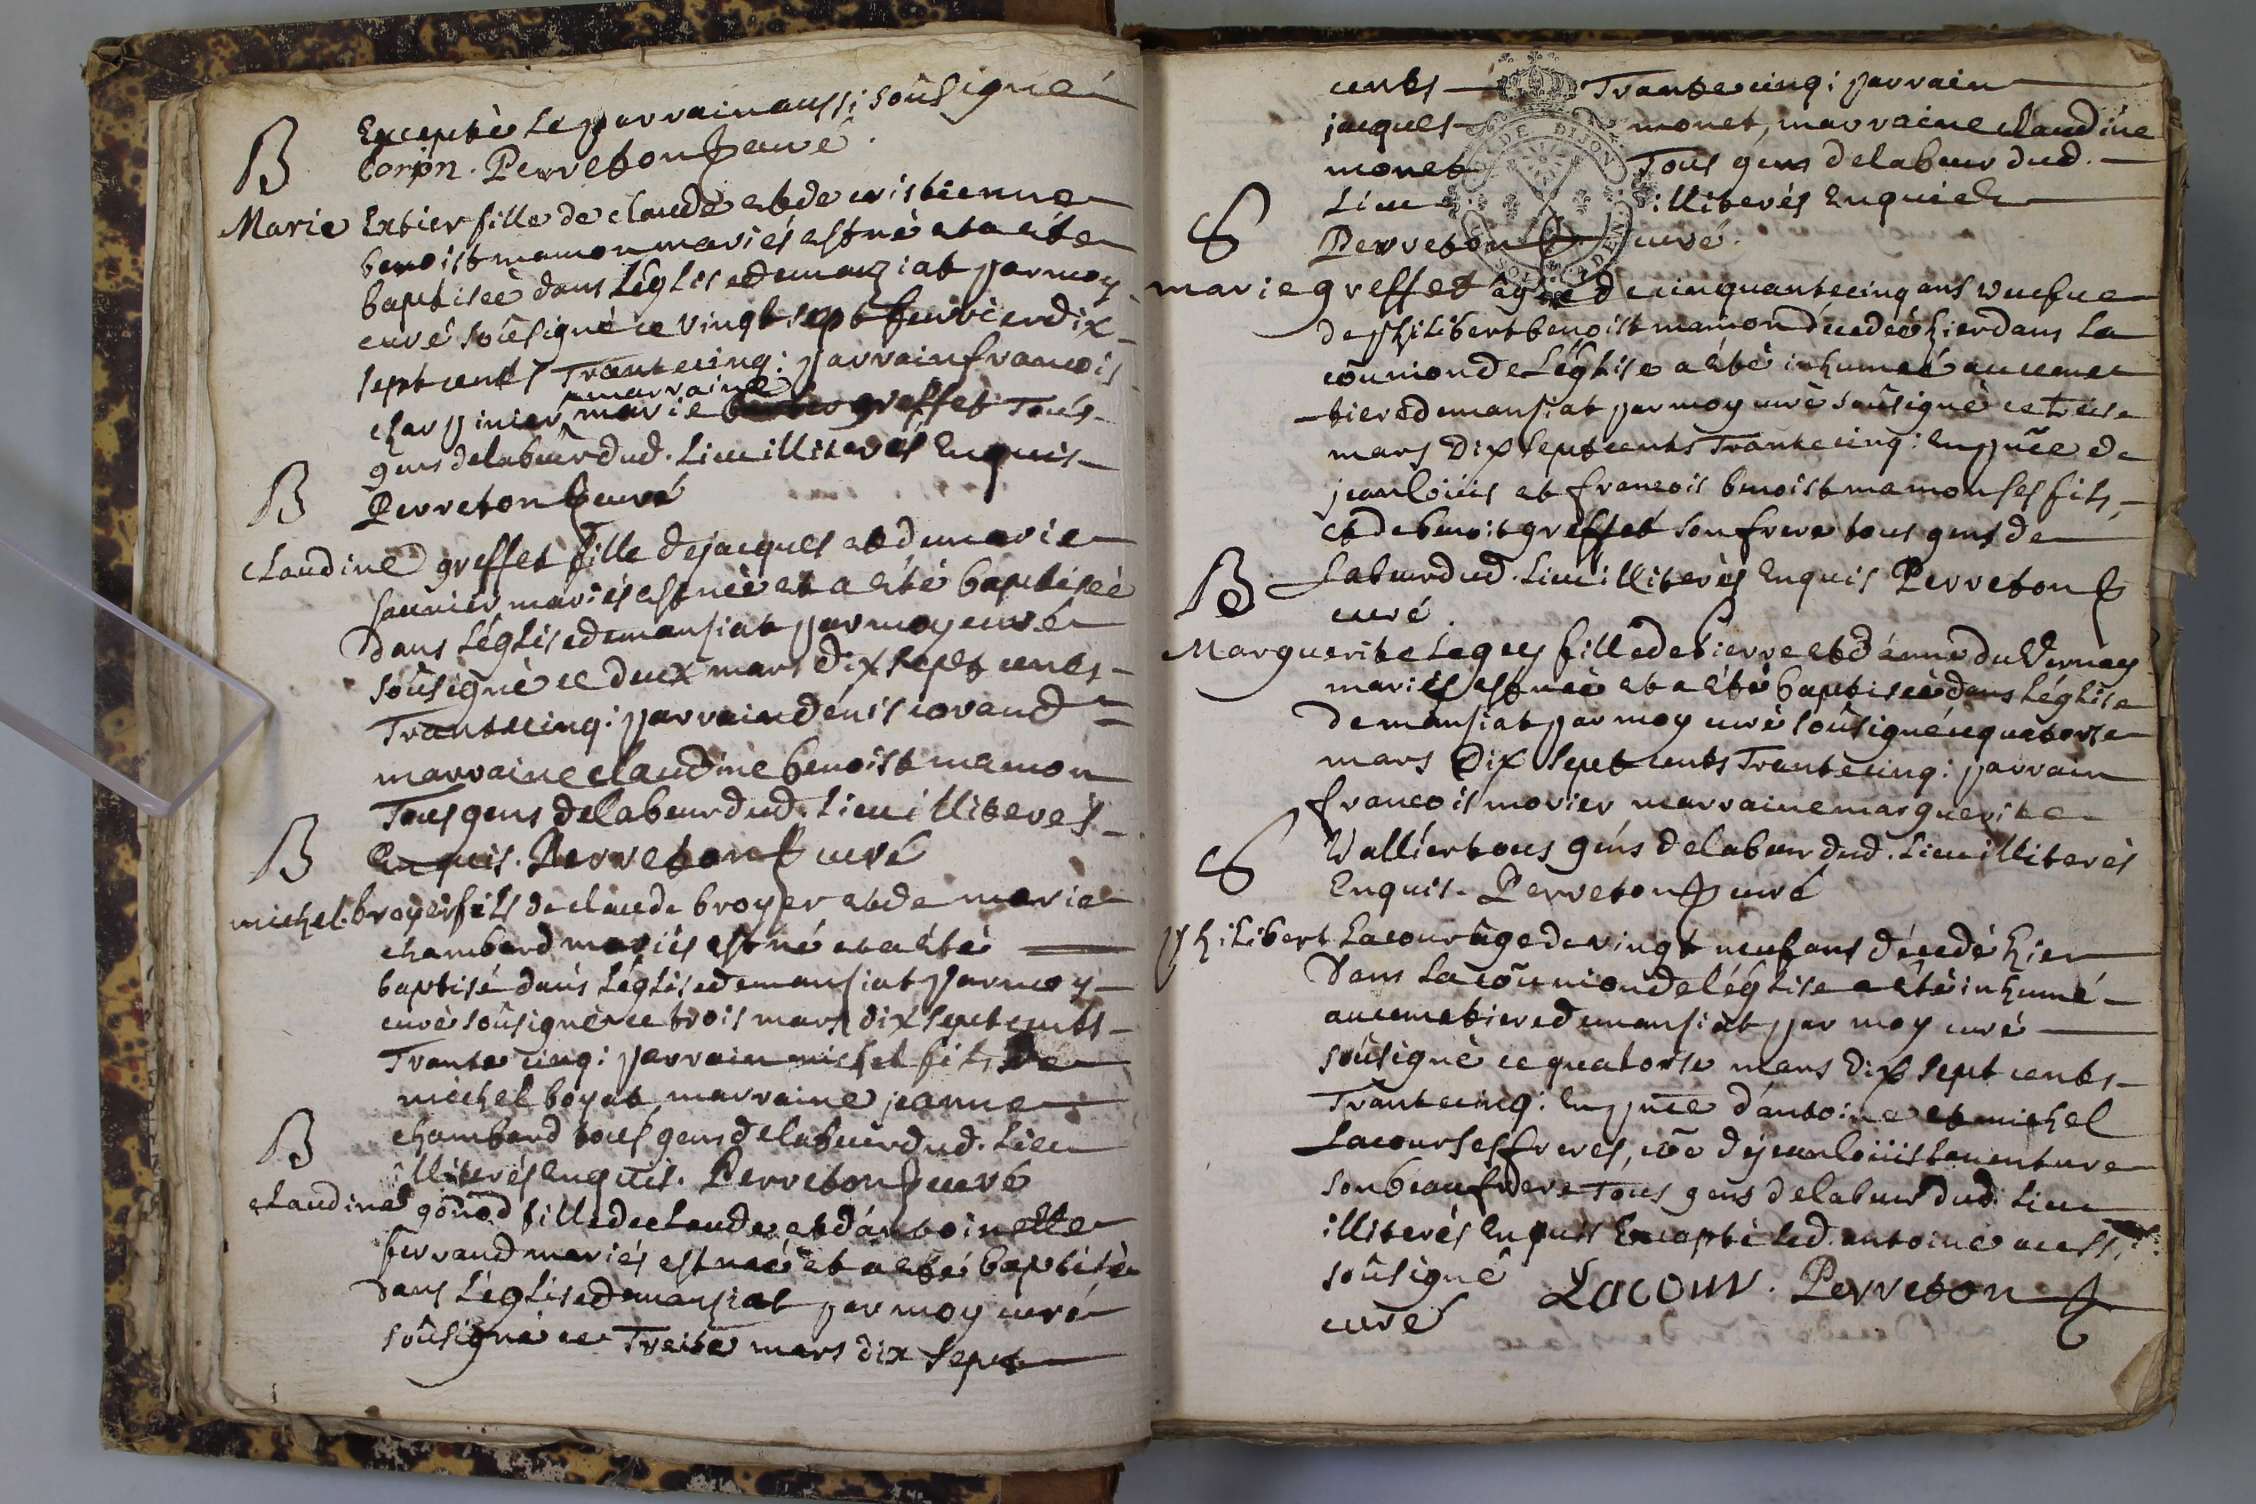 Exceptè le parrain aussi soûsigné
Corpn. Perreton curé.
B
Marie Extier fille de claude et de cristienne
benoist mamon mariés est neè et a etè
baptiseè dans l'église de manziat par moy
curé soûsignè ce vingt sept feuvrier dix
sept cents Trante cinq: parrain francois
marraine
charpinier marie greffet Tous
gens de labeur dud. lieu illiterés Enquis
Perreton curé
B
claudine greffet fille de jacques et de marie
saunier mariés est neè et a eté baptiseè
dans l'église de mansiat par moy curé
soûsigné ce deux mars dix sept cents
Trante cinq: parrain denis corand
marraine claudine benoist mamon
Tous gens de labeur dud. lieu illiterés
Enquis. Perreton curé
B
michel broyer fils de claude broyer et de marie
chambard mariés est né et a eté
baptisé dans l'église de mansiat par moy
curè soûsigné ce trois mars dix sept cents
Trante cinq: parrain michel fils de
michel boyat marraine jeanne
chambard tous gens de labeur dud. lieu
illiterés Enquis. Perreton curé
B
claudine gonod fille de claude et d'antoinette
ferrand mariés est neé et a eté baptisée
dans l'église de mansiat par moy curé
soûsigné ce Treize mars dix sept
cents Trante cinq: parrain
jacques monet, marraine claudine
monet Tous gens de labeur dud.
lieu illiterés Enquis
Perreton curé.
DE DIJON
S
marie greffet âgée de cinquante cinq ans veufue
de philibert benoist mamon decedeé hier dans la
coñunion de l'église a eté inhumeé au cime
tiere de mansiat par moy curé soûsigné ce treise
mars dix sept cents Trante cinq: En pñce de
jean loüis et francois benoist mamon ses fils,
et de benoit greffet son frere tous gens de
labeur dud. lieu illiterés Enquis Perreton
curé.
B
Marguerite legey fille de pierre et d'anne du Vernay
mariés est neè et a eté baptiseè dans l'église
de mansiat par moy curé soûsigné ce quatorse
mars Dix sept cents Trante cinq: parrain
francois morier marraine marguerite
Vallier tous gens de labeur dud. lieu illiterés
Enquis. Perreton curé
S
philibert lacour âge de vingt neuf ans décedé hier
dans la coñunion de l'église a eté inhumé
au cimetiere de mansiat par moy curé
soûsigné ce quatorse mars dix sept cents
Trante cinq: En pñce d'antoine et michel
lacour ses freres, de jean loüis
son beau frere Tous gens de labeur dud. lieu
illiterés Enquis Excepté led. antoine aussi
soûsigné Lacour. Perreton
curé